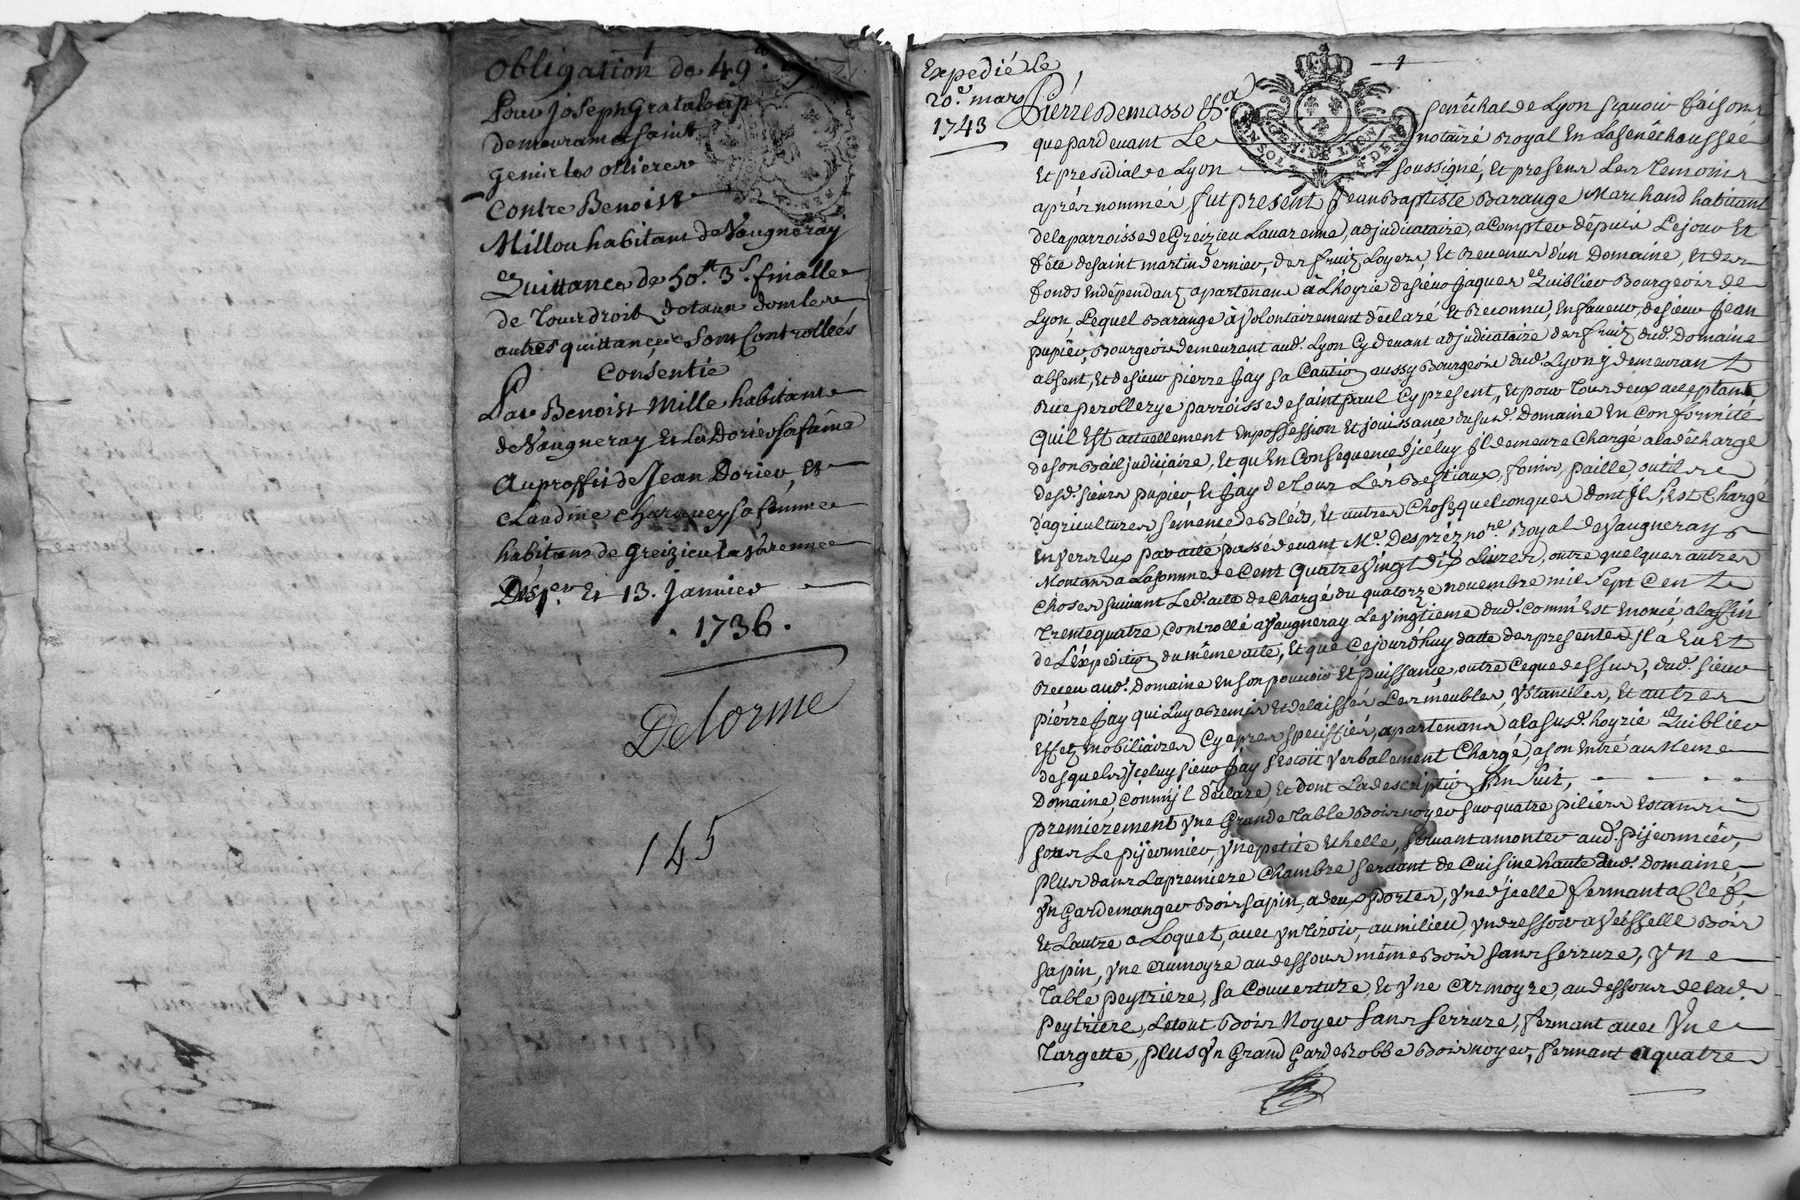 Obligation de 49.
Pour Joseph Grataloup
demeurant a saint
genis les ollieres
Contre Benoist
Millou habitant de Vaugneray
Quittance de 50.tt 3.s finalle
de tour droit dotaux dont les
autres quittances sont Controllées
Consentie
Par Benoist Mille habitant
de Vaugneray et La Dorier sa fame
Au proffit de Jean Dorier, et
Claudine Charavey sa femme
habitans de Greizieu la Varenne
Des 1.er et 13. Janvier
. 1736 .
Delorme
145
Expedié Le
20.e mars
1743
1
Pierre Demasso Es.a Senéchal de Lyon sçavoir faisons
que pardevant Le notairé Royal En La senêchaussée
Et présidial de Lyon soussigné, Et presens Les temoins
aprés nommés fut présent Jean Baptiste Barange Marchand habitant
de la parroisse de Greizieu Lavarenne, adjudicataire, a Compter dépuis Le jour Et
fête de saint martin dernier, des fruitz Loyers, Et Revenus d'un Domaine, Et des
fonds indépendantz apartenans à L'hoyrie de sieur Jaques Quiblier Bourgeois de
Lyon, Lequel Barange a volontairement déclaré Et Reconnu, En faveur de sieur Jean
Pupier, Bourgeois demeurant aud. Lyon Cy devant adjudicataire des fruitz dud. Domaine
absent, Et de sieur pierre Jay sa Caution aussy Bourgeois dud. Lyon y demeurant
Rue perollerye parroisse de saint paul Cy présent, Et pour tous deux acceptant,
Quil Est actuellement En possession Et jouissance du susd. Domaine En Conformité
de son Bail judiciaire, Et qu'En Consequence d'iceluy Jl demeure Chargé a la décharge
desd. sieurs pupier Et Jay de tous Les Bestiaux, foins, paille, outils
d'agricultures semence de Bléds, Et autres Choses quelconques dont Jl s'Est Chargé
Envers Eux par acte passé devant M.e Despréz no.re Royal de Vaugneray
Montans a La somme de Cent quatre Vingt dix Livres, outre quelques autres
Choses suivant Led. acte de Chargé du quatorze novembre mil sept Cent
trentequatre Controllé a Vaugneray Le vingtieme dud. comm'Est Enoncé, a la ffin
de L'expedition du même acte, Et que Cejourd'huy datte des presentes Jl a Eu Et
Reçeu aud. Domaine En son pouvoir Et puissance, outre Ceque dessus, dud. sieur
pierre Jay qui Luy a Remis Et delaissés Les meubles, ystancilles, Et autres
Effetz mobiliaires Cy apres speciffiés, apartenans a la susd. hoyrie Quiblier
desquels Jceluy sieur Jay s'Estoit verbalement Chargé, a son Entré au Meme
Domaine, Comm'jl déclare, Et dont La descriptio s'En suit,
premiérement yne Grande table Bois noyer sur quatre piliers Estants
sous Le pijeonnier, yne petite Echelle, servant a monter aud. pijeonnier,
plus dans La premiere Chambre servant de Cuisine haute dud. Domaine,
yn Gardemanger Bois sapin, a deux portes, yne d'jcelle fermant a Clef,
Et L'autre a Loquet, avec yn tiroir, au milieu, yn dressoir a Veisselle Bois
sapin, yne Aumoyre au dessous même Bois sans serrure, yne
table peytriere, sa Couverture, Et yne Armoyre, au dessous de Lad.
peytriere, Letout Bois Noyer sans serrure, fermant avec yne
targette, plus yn Grand Garde Robbe Bois noyer, fermant a quatre